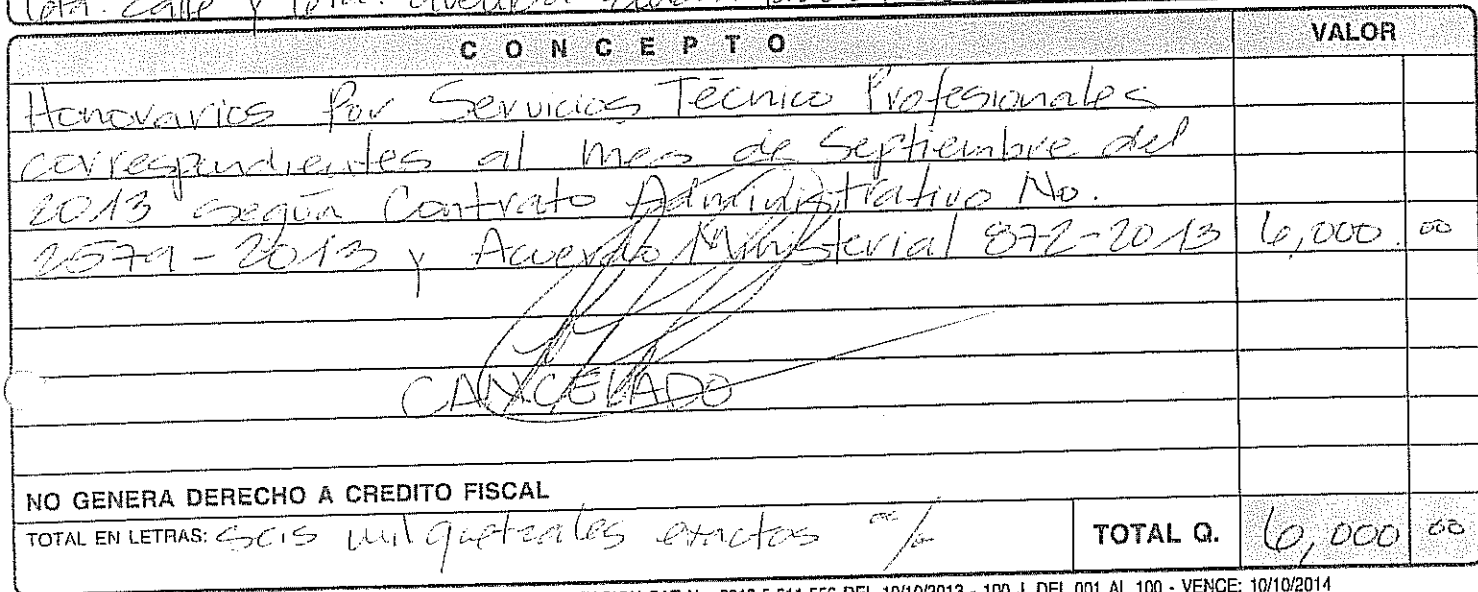 10ta. calle y
CONCEPTO VALOR
Honorarios Por Servicios Técnico Profesionales
correspondientes al mes de Septiembre del
2013 según Contrato Administrativo No.
2579-2013 y Acuerdo Ministerial 872-2013 6,000 00
CANCELADO
NO GENERA DERECHO A CREDITO FISCAL
TOTAL EN LETRAS: Seis mil quetzales exactos TOTAL Q. 6,000 00
DEL 10/10/2013 - 100 J. DEL 001 AL 100 - VENCE: 10/10/2014